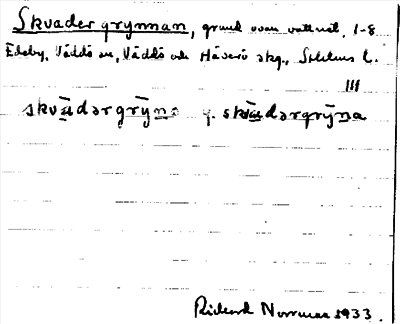 Skvadergrynnan, grund ovan vattnet, 1-8
Edeby, Väddö sn, Väddö och Häverö skg., Sthlms l.
III
skvadərgryna skvadərgryna
Rickard Norrman 1933.